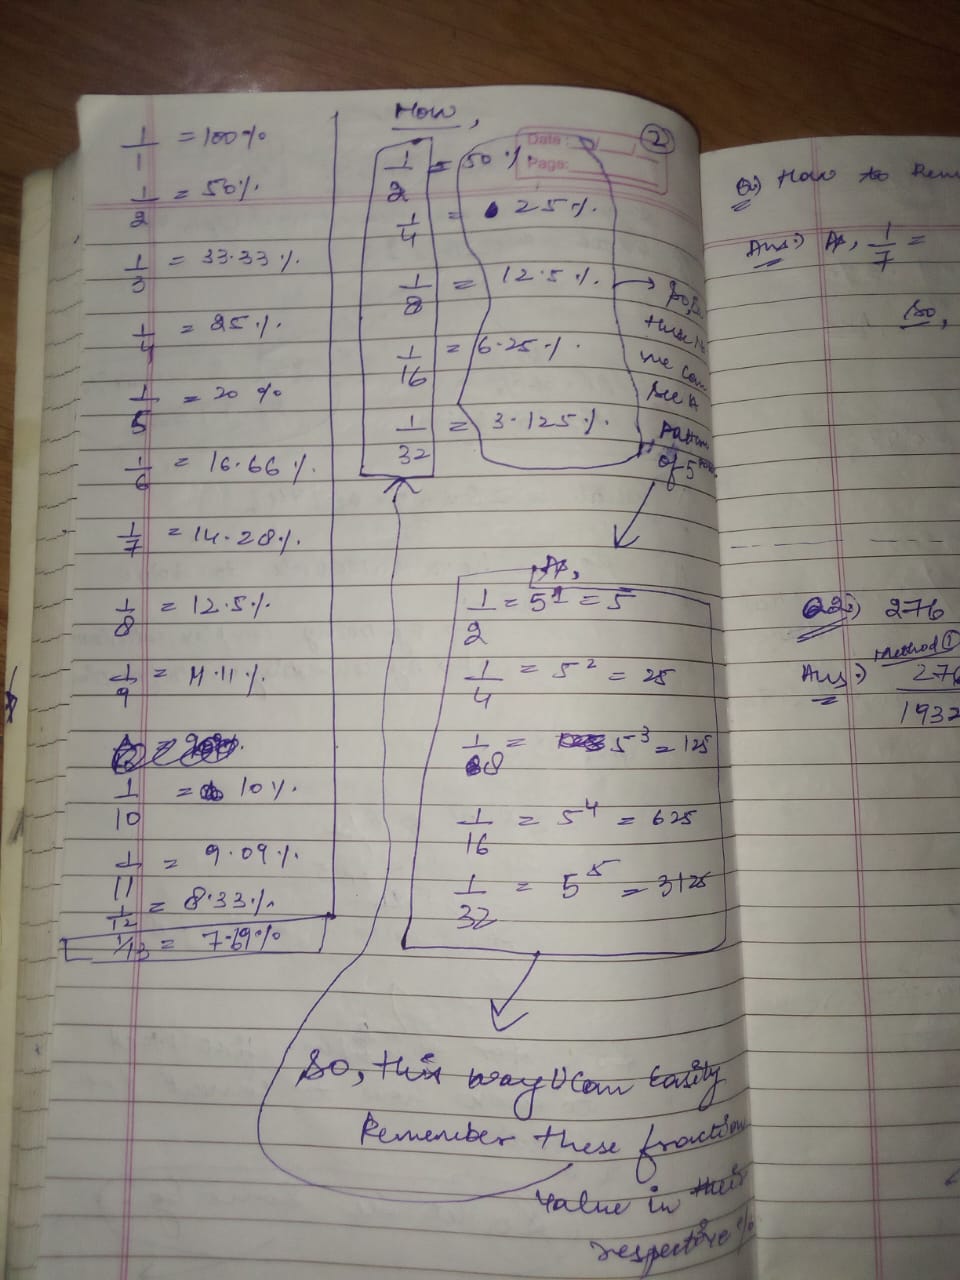 1/1 = 100%
1/2 = 50%
1/3 = 33.33%
1/4 = 25%
1/5 = 20%
1/6 = 16.66%
1/7 = 14.28%
1/8 = 12.5%
1/9 = 11.11%
1/10 = 10%
1/11 = 9.09%
1/12 = 8.33%
1/13 = 7.69%
How,
2
Date
Page:
1/2 = 50%
1/4 = 25%
1/8 = 12.5%
1/16 = 6.25%
1/32 = 3.125%
So,
we can
see a
pattern
of 5
As,
1/2 = 5^1 = 5
1/4 = 5^2 = 25
1/8 = 5^3 = 125
1/16 = 5^4 = 625
1/32 = 5^5 = 3125
So, this way U can Easily
Remember these fraction
value in their
respective %
Q) How to
Ans:) As, 1/7 =
So,
Q2:) 276
Method 1
Ans:) 276
1932